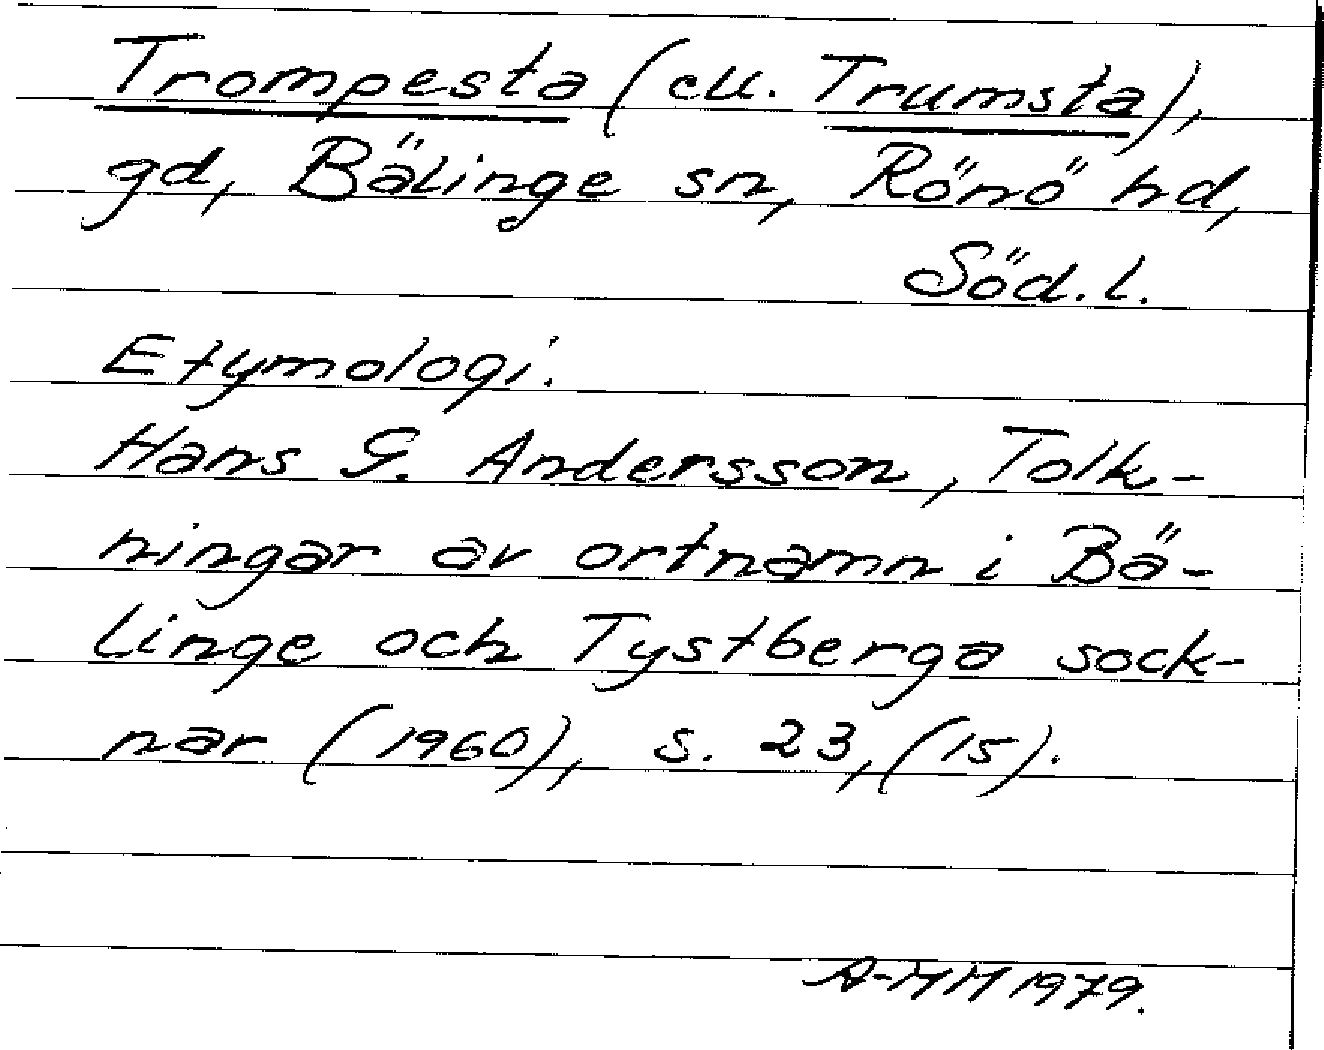 Trompesta (ell. Trumsta),
gd, Bälinge sn, Rönö hd,
Söd. l.
Etymologi:
Hans G. Andersson, Tolk-
ningar av ortnamn i Bä-
linge och Tystberga sock-
nar (1960), s. 23, (15).
A-MM 1979.